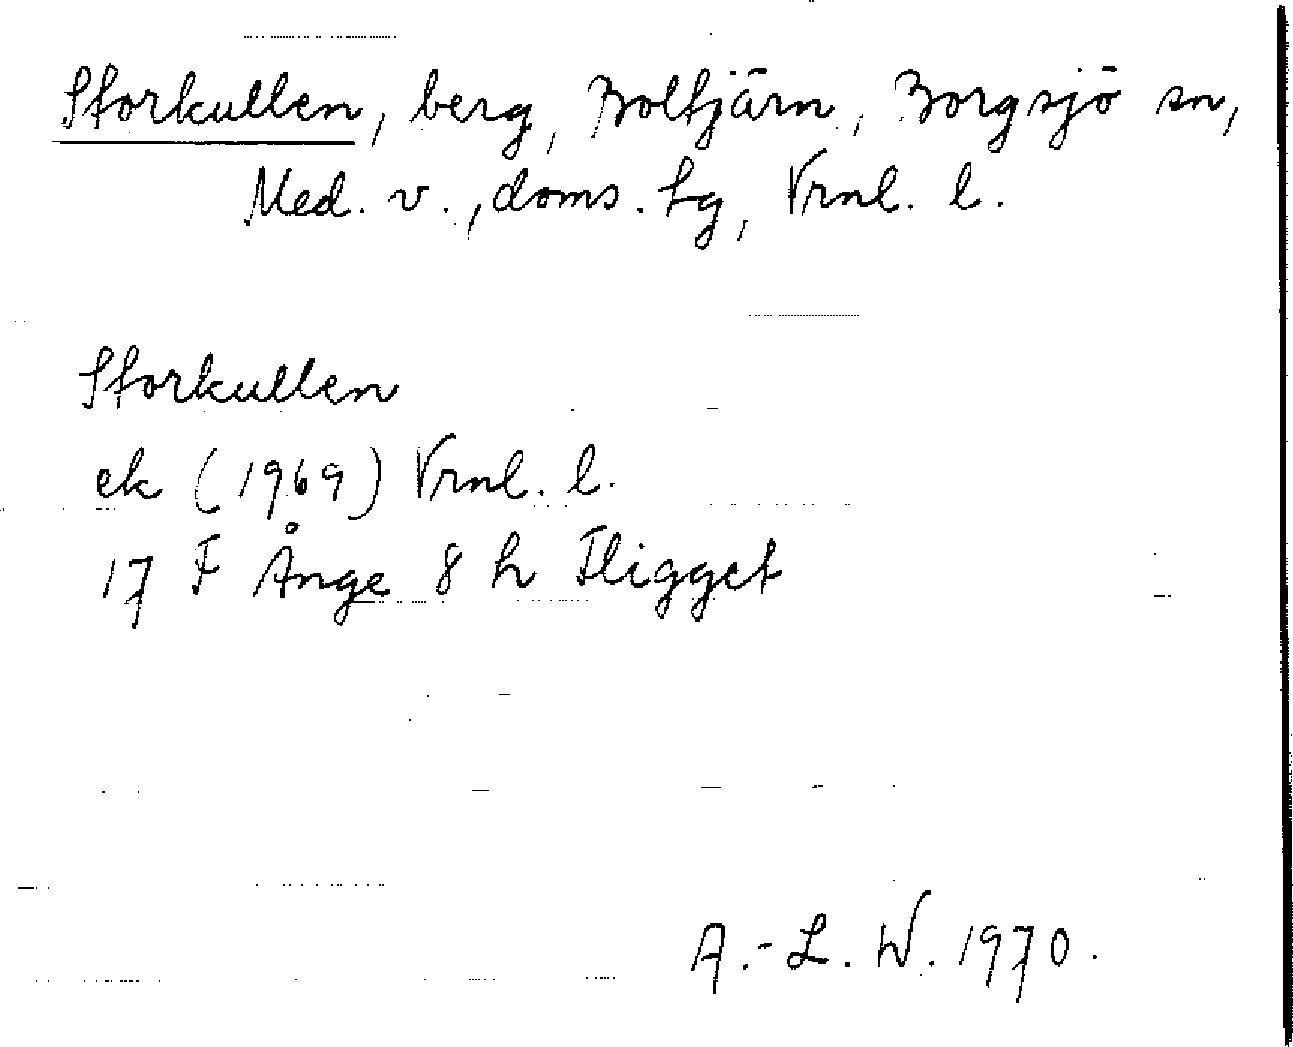 Storkullen, berg, Boltjärn, Borgsjö sn,
Med. v., doms. hg, Vrnl. l.
Storkullen
ek (1969) Vrnl. l.
17 F Ånge 8 h Fligget
A.-L. W. 1970.